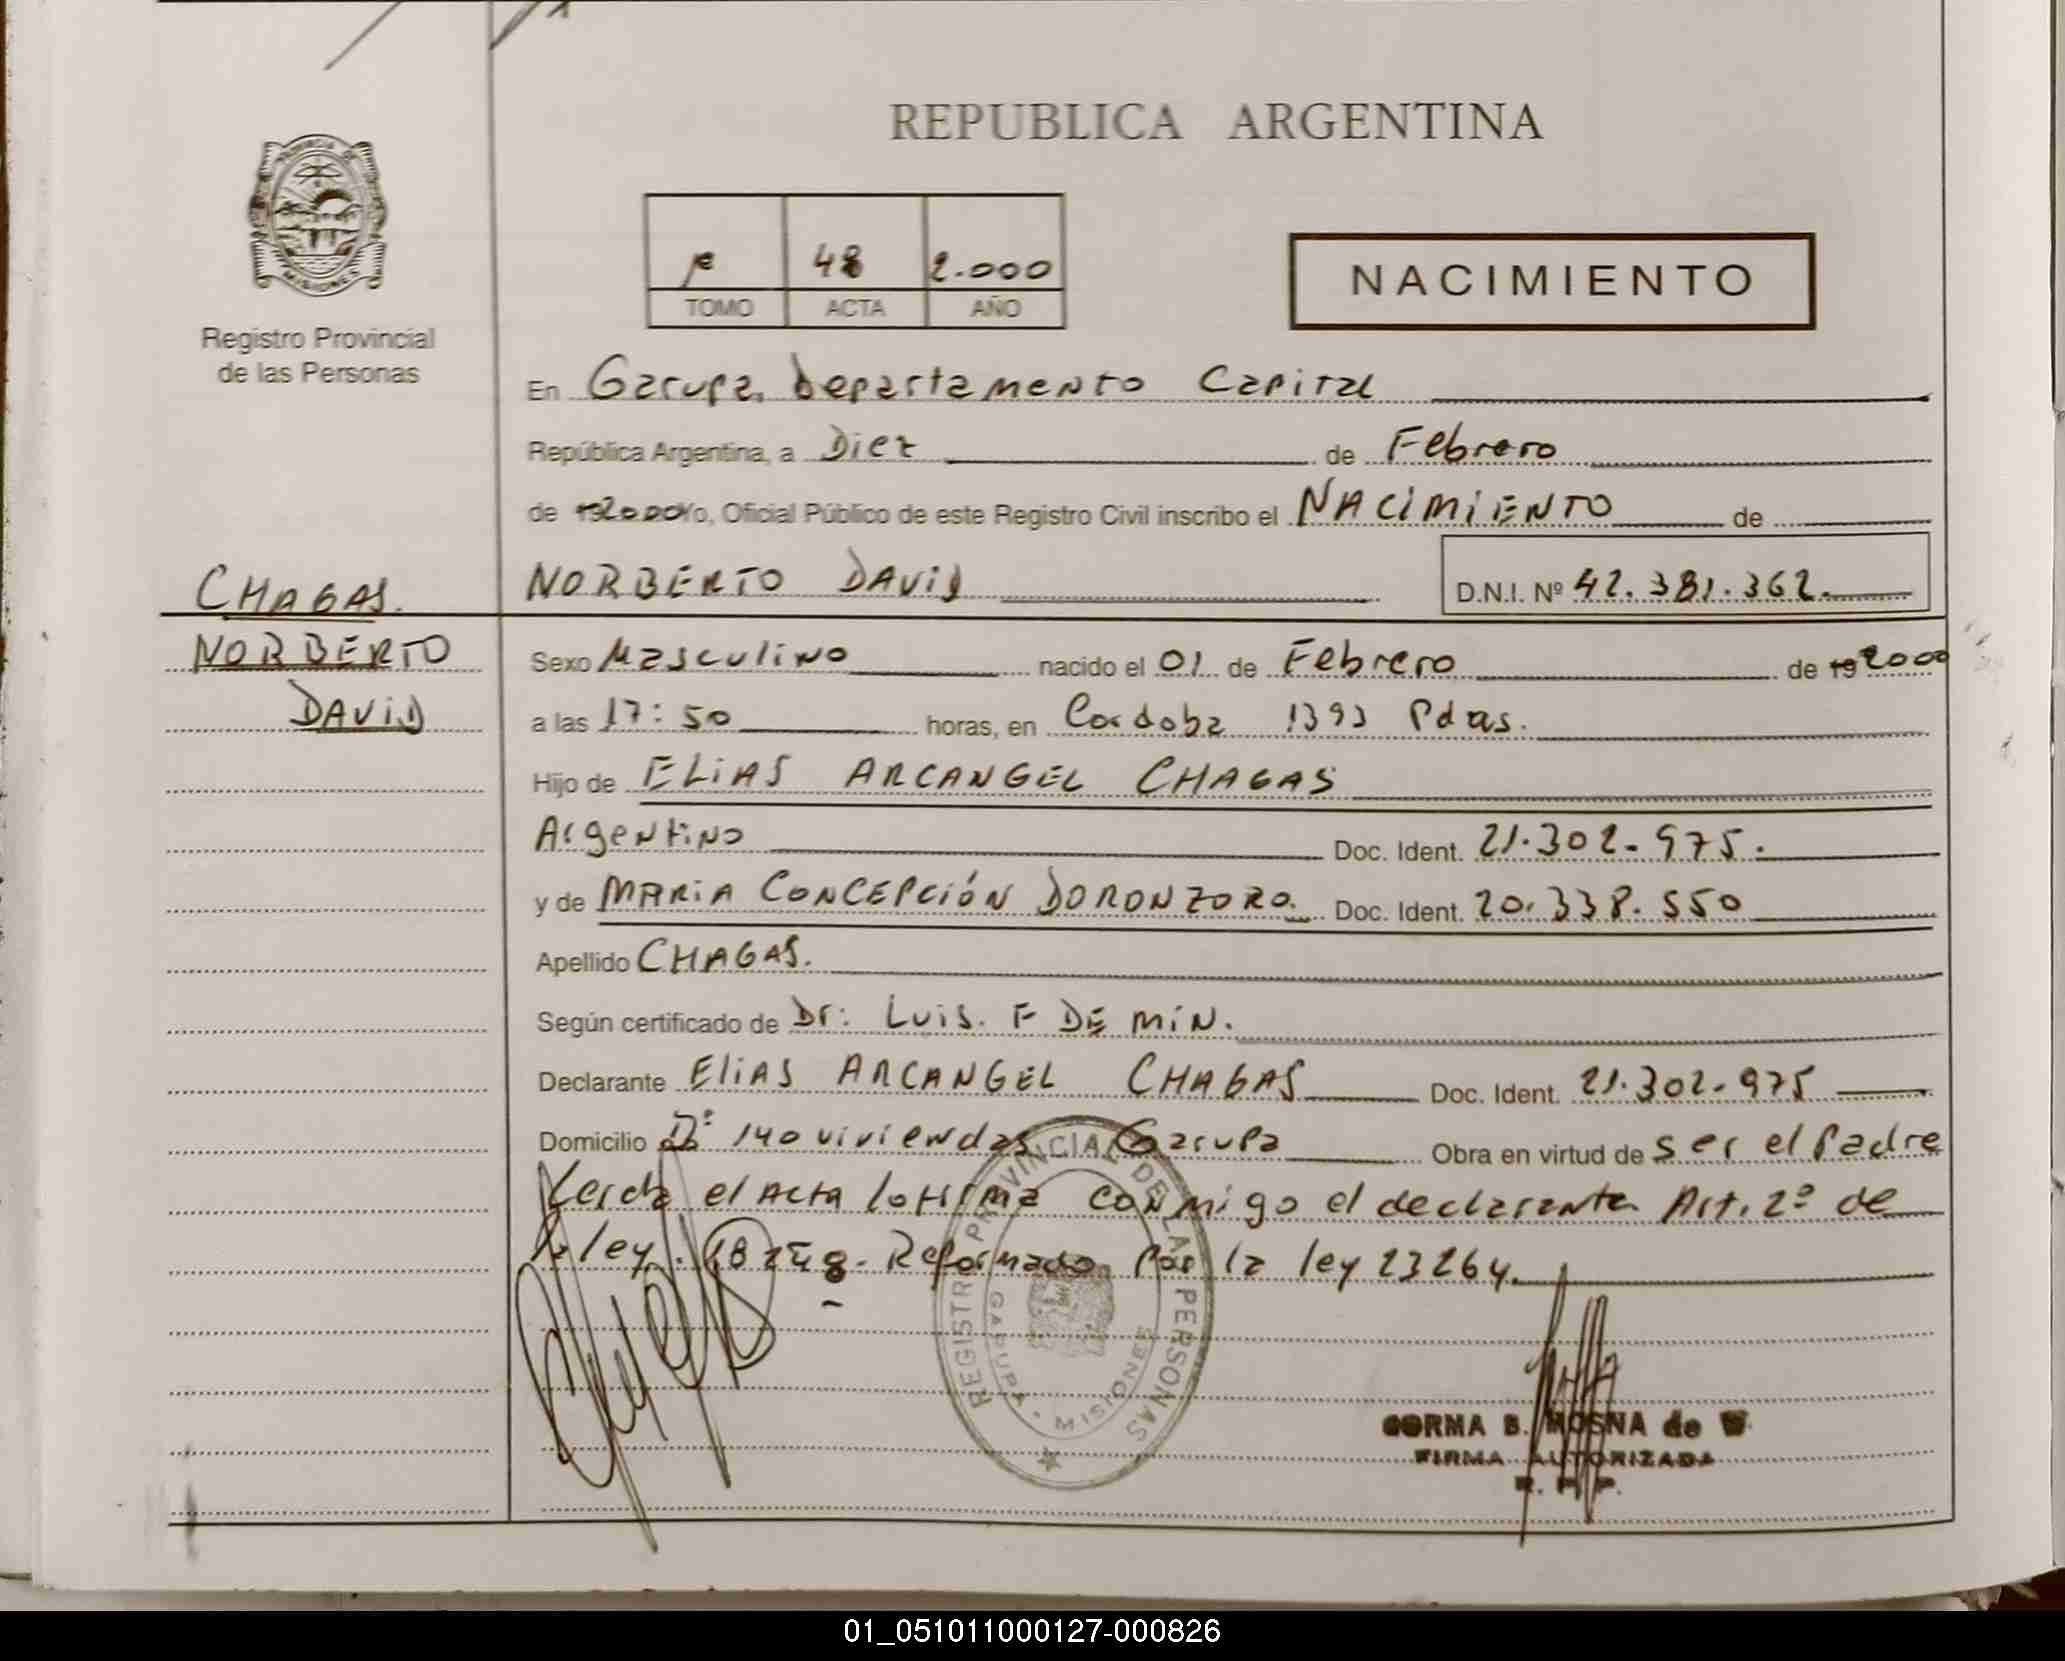 REPUBLICA ARGENTINA
PROVINCIA DE
MISIONES
Registro Provincial
de las Personas
48 2.000
TOMO ACTA AÑO
NACIMIENTO
En Garupa, Departamento Capital
República Argentina, a Diez de Febrero
de 192000 Yo, Oficial Público de este Registro Civil inscribo el NACIMIENTO de
CHAGAS.
NORBERTO DAVID D.N.I. Nº 42.381.362.
NORBERTO
DAVID
Sexo Masculino nacido el 01 de Febrero de 192000
a las 17:50 horas, en Cordoba 1393 Pdas.
Hijo de ELIAS ARCANGEL CHAGAS
Argentino Doc. Ident. 21.302.975.
y de MARIA CONCEPCIÓN DORONZORO. Doc. Ident. 20.338.550
Apellido CHAGAS.
Según certificado de Dr: Luis. F DE MIN.
Declarante ELIAS ARCANGEL CHAGAS Doc. Ident. 21.302.975
Domicilio Bº 140 viviendas Garupa Obra en virtud de ser el Padre
Leida el Acta la firma conmigo el declarante Art. 2º de
la ley. 18248. Reformado por la ley 23264.
REGISTRO PROVINCIAL DE LAS PERSONAS
GARUPA - MISIONES
NORMA B. MOSNA de
FIRMA AUTORIZADA
R. P. P.
01_051011000127-000826